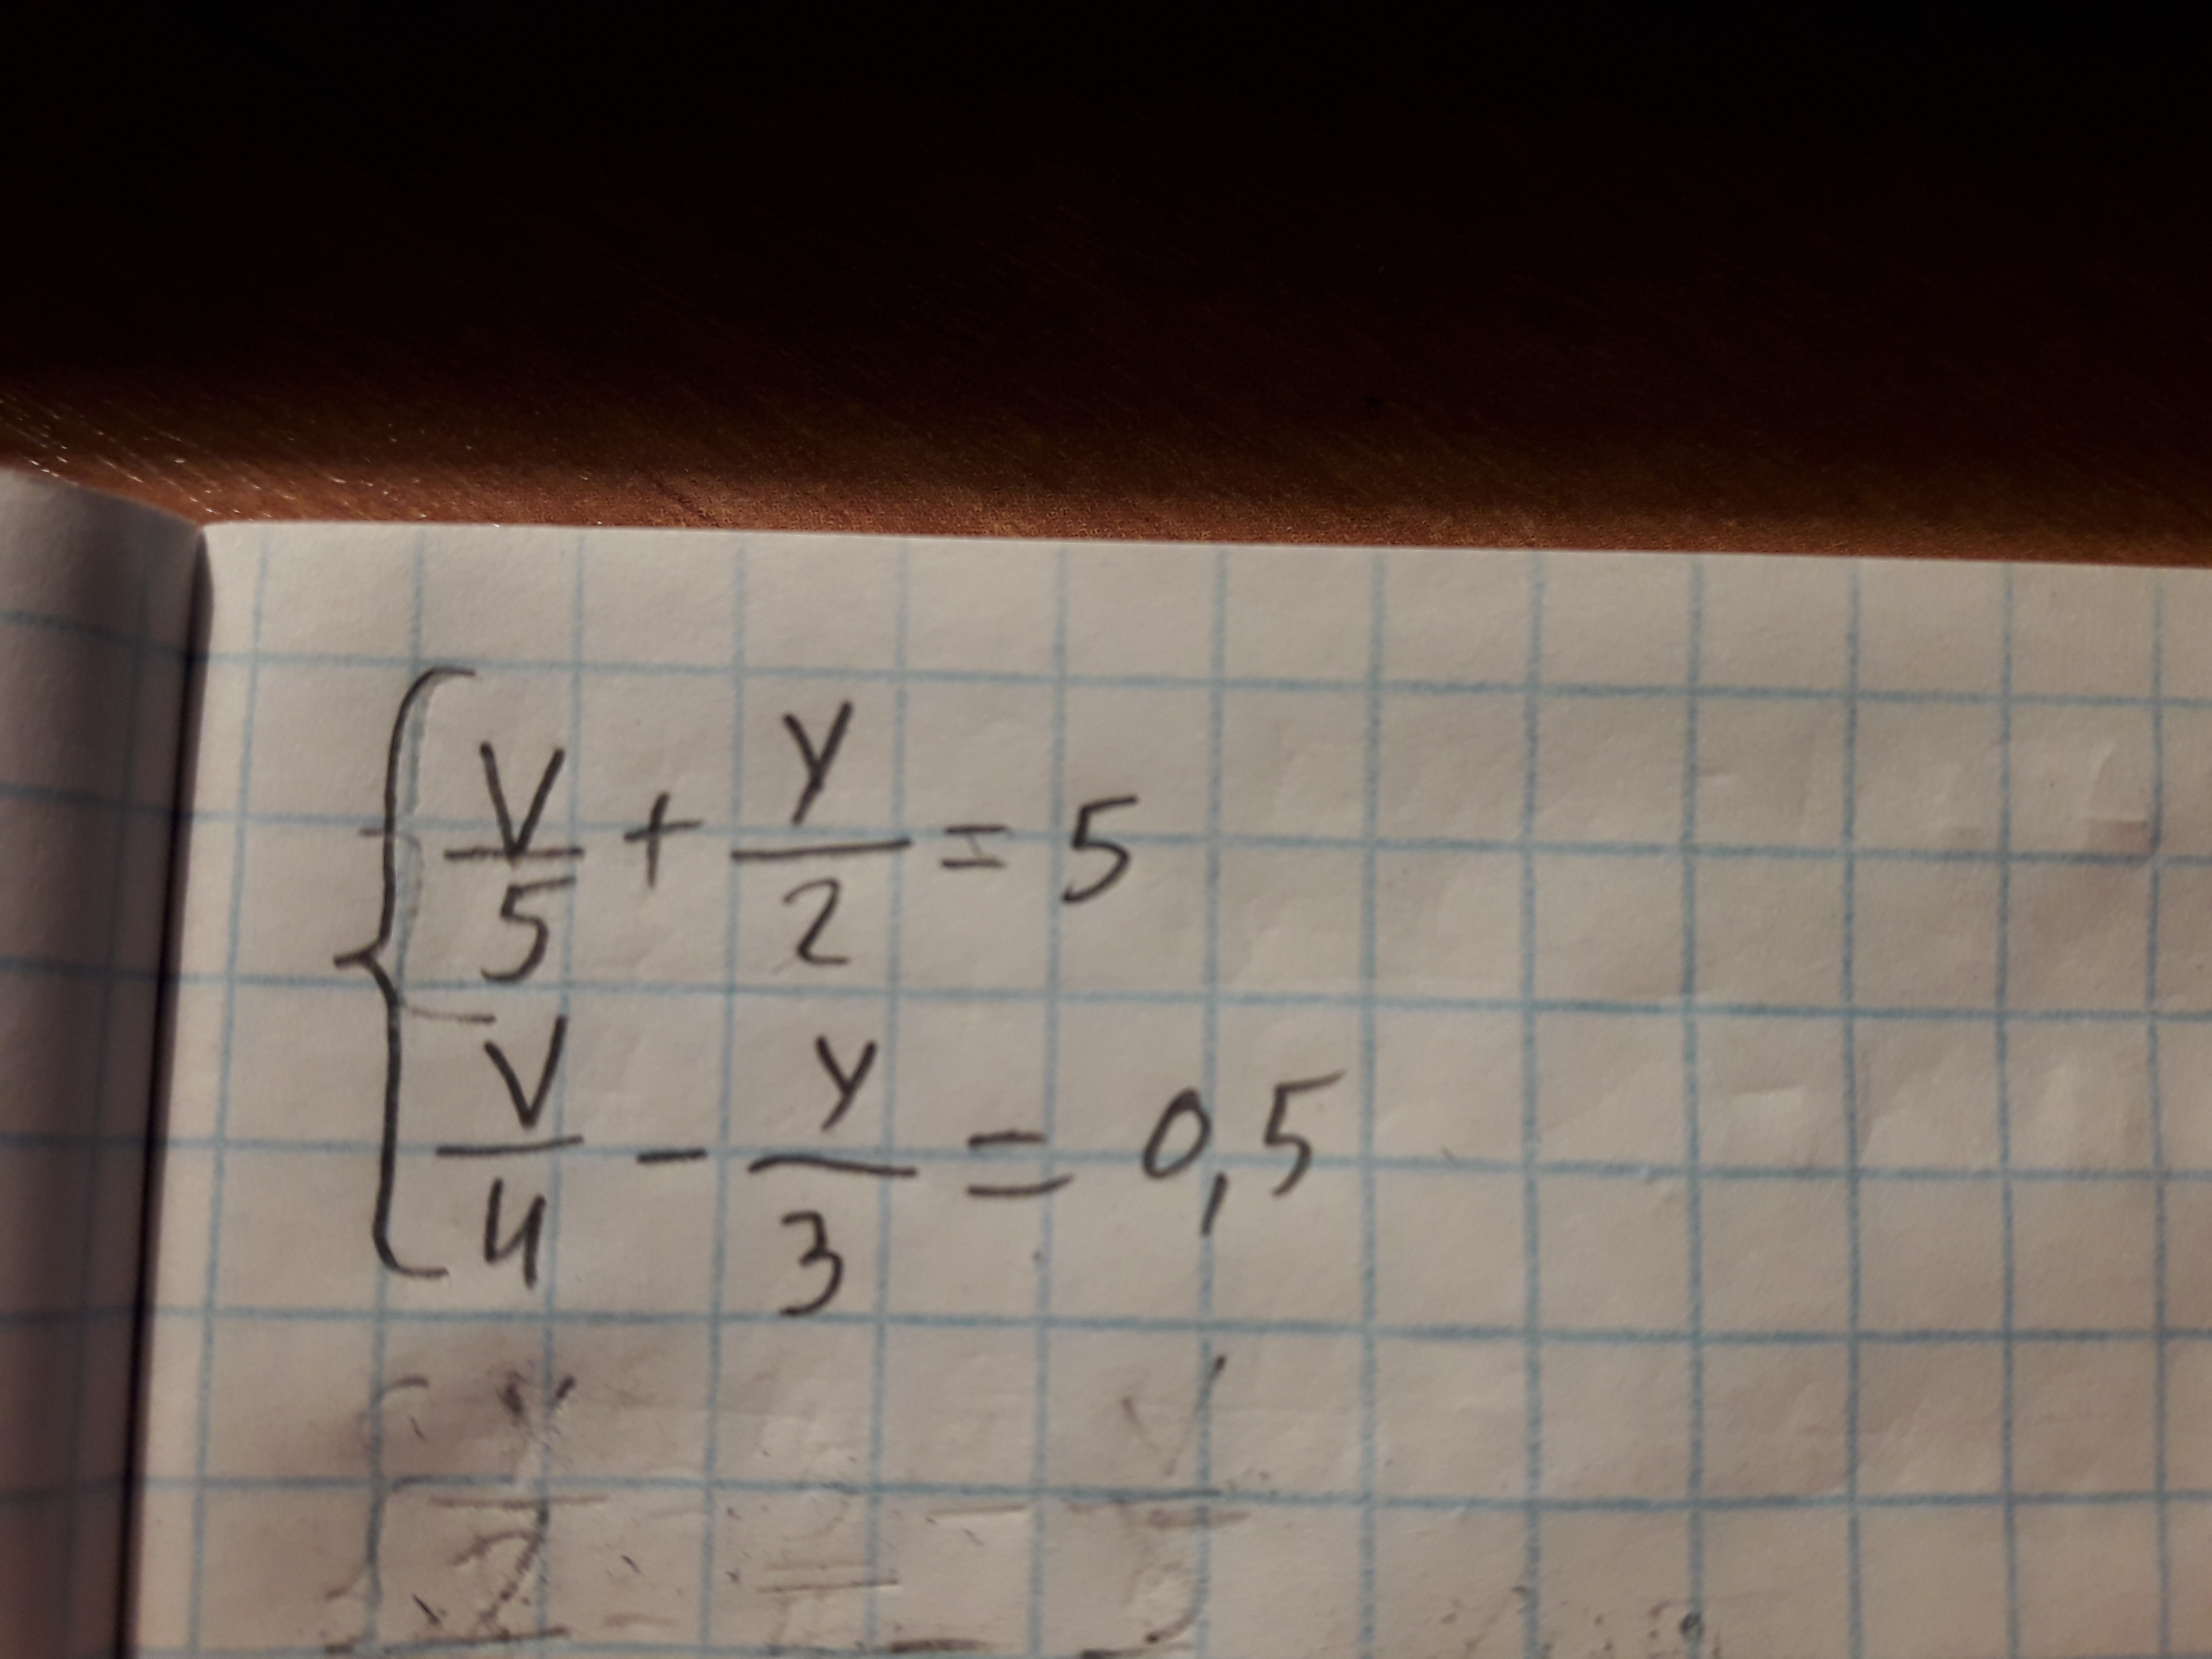 V/5 + y/2 = 5
V/4 - y/3 = 0,5